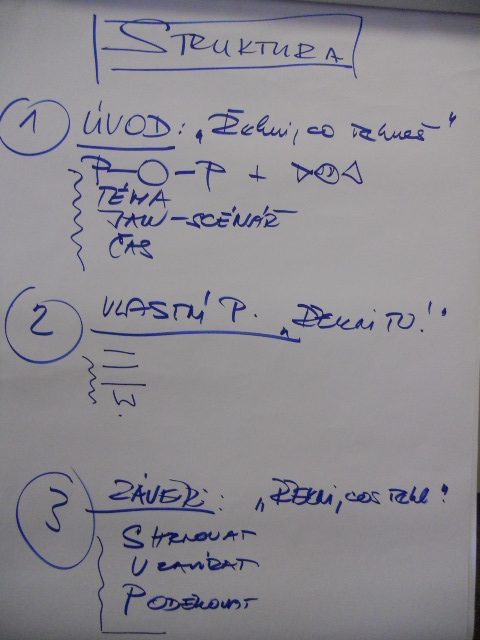 STRUKTURA
1 ÚVOD: „Řekni, co řekneš"
P-O-P +
TÉMA
JAK-SCÉNÁŘ
ČAS
2 VLASTNÍ P. „ŘEKNI TO!"
3 ZÁVĚR: „ŘEKNI, COS ŘEKL"
SHRNOVAT
UZAVÍRAT
PODĚKOVAT